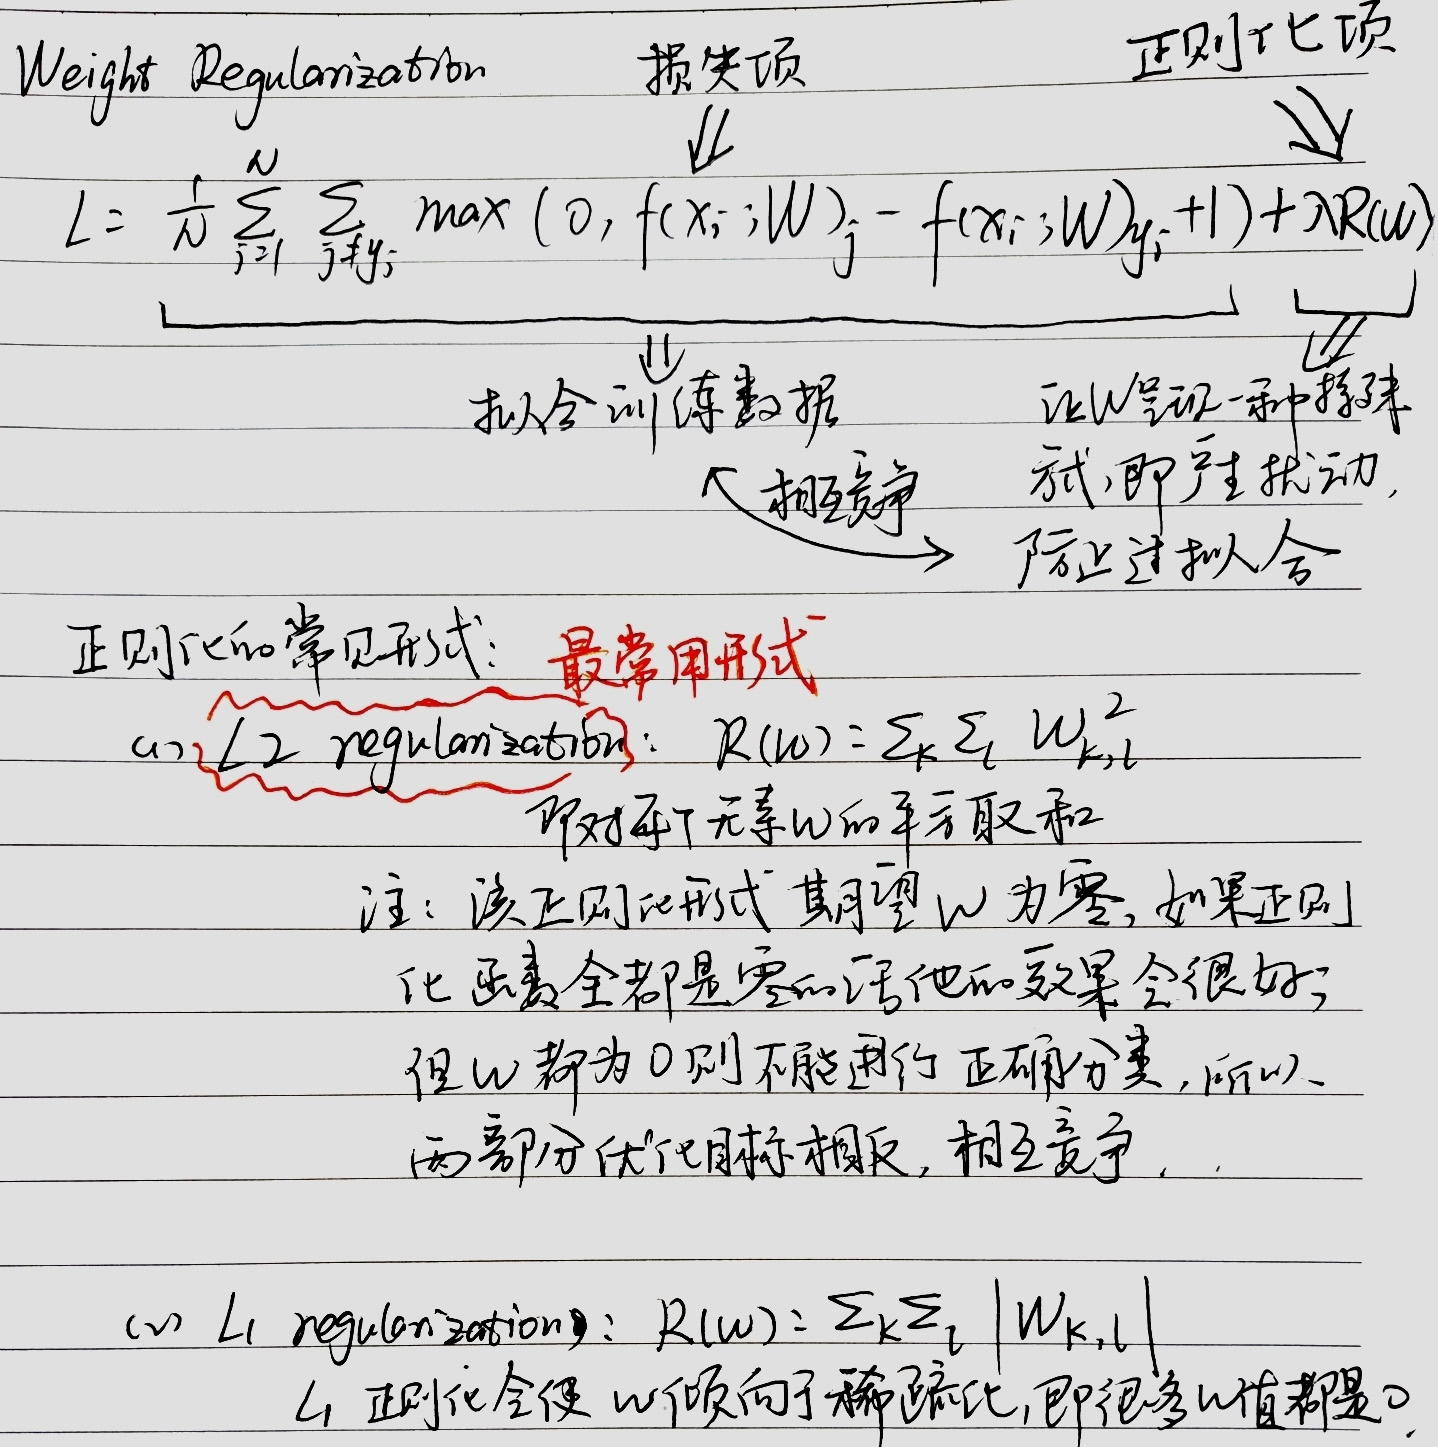 Weight Regularization 损失项 正则化项
L = 1/N ∑_{i=1}^{N} ∑_{j≠y_i} max(0, f(x_i;W)_j - f(x_i;W)_{y_i} + 1) + λR(W)
拟合训练数据
让W呈现一种特殊
方式,即产生扰动,
防止过拟合
相互竞争
正则化的常见形式: 最常用形式
(1) L2 regularization: R(W) = ∑_k ∑_l W_{k,l}^2
即对每个元素W的平方取和
注: 该正则化形式期望W为零, 如果正则
化函数全都是零的话他的效果会很好;
但W都为0则不能进行正确分类, 所以
两部分优化目标相反, 相互竞争.
(2) L1 regularization: R(W) = ∑_k ∑_l |W_{k,l}|
L1 正则化会使W倾向于稀疏化, 即很多W值都是0.